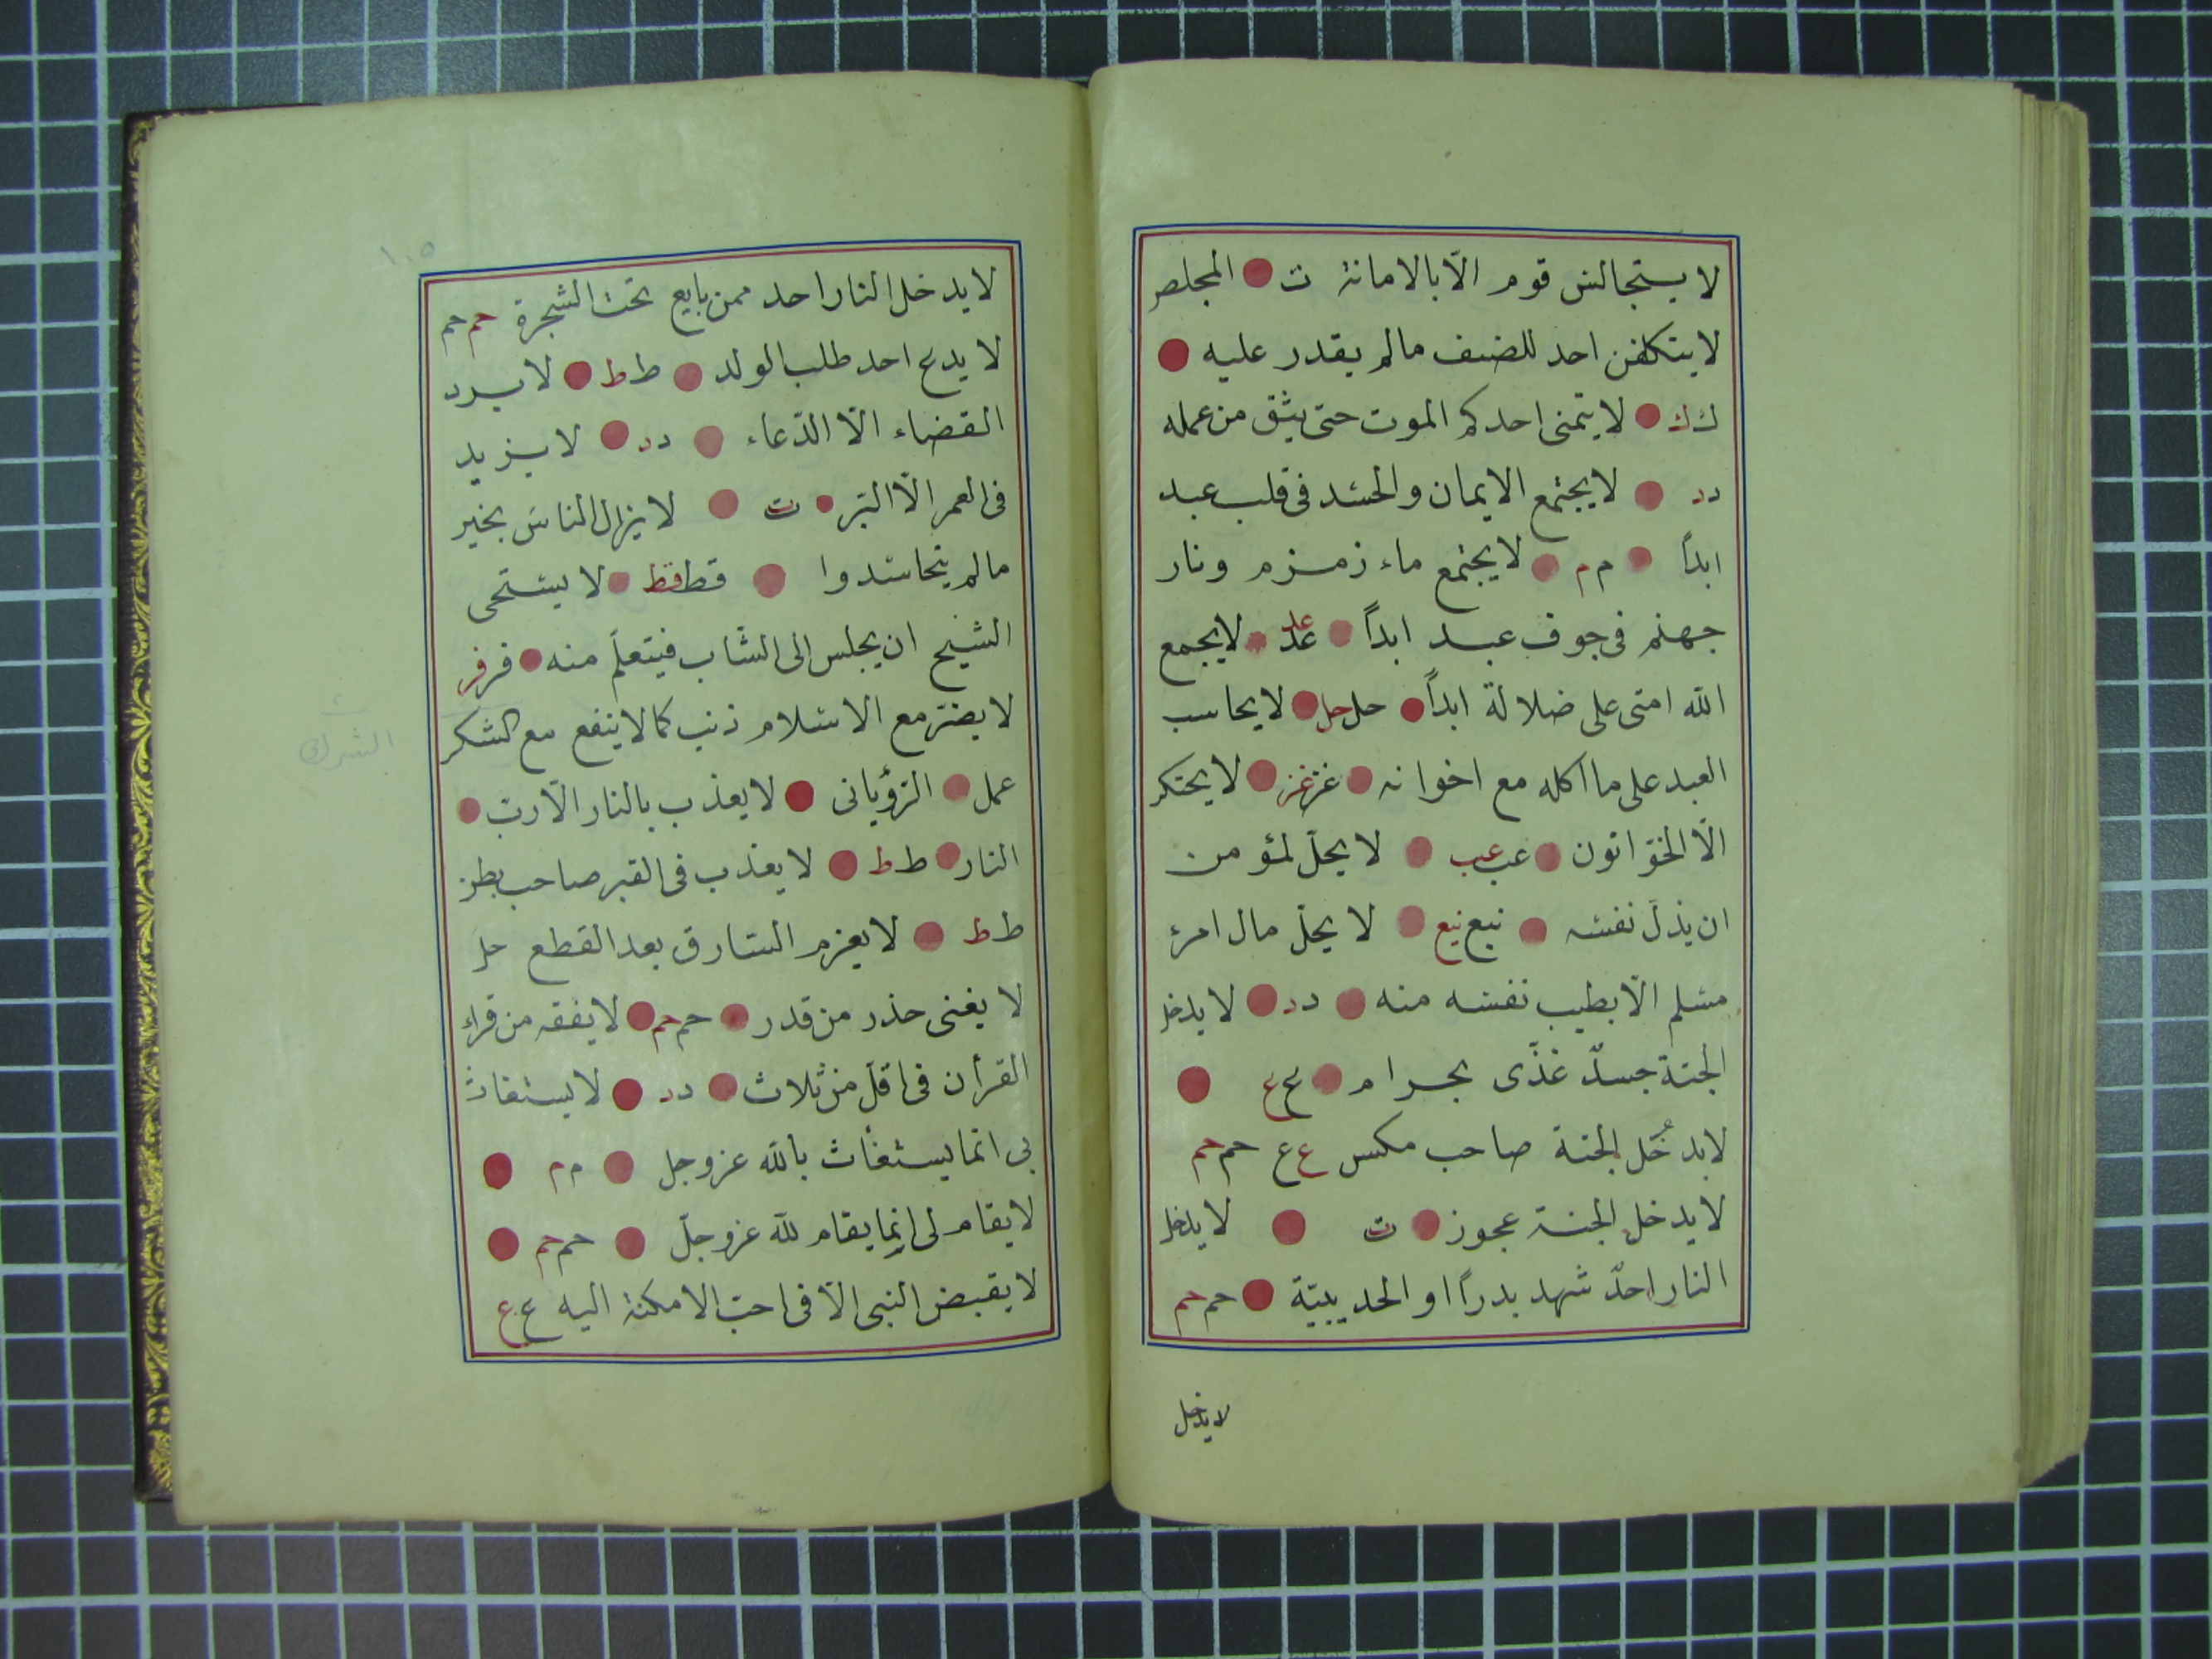 لا يتجالس قوم الّا بالامانة ت المجلص
لا يتكلفن احد للضيف مالم يقدر عليه
ك ك لا يتمنى احدكم الموت حتى يثق من عمله
د د لا يجتمع الايمان والحسد فى قلب عبد
ابداً م م لا يجتمع ماء زمزم ونار
جهنم فى جوف عبد ابداً عد عد لا يجمع
الله امتى على ضلالة ابداً حل حل لا يحاسب
العبد على ما اكله مع اخوانه غز غز لا يحتكر
الّا الخوّانون عب عب لا يحلّ لمؤمن
ان يذلّ نفسه نيع نيع لا يحلّ مال امرئ
مسلم الّا بطيب نفسه منه د د لا يدخل
الجنة جسدٌ غذّى بحرام ع ع
لا يدخُل الجنة صاحب مكس ع ع حم حم
لا يدخل الجنة عجوز ت لا يدخل
النار احدٌ شهد بدراً او الحديبيّة حم حم
لا يدخل
١٠٥
لا يدخل النار احد ممن بايع تحت الشجرة حم حم
لا يدع احد طلب الولد ط ط لا يرد
القضاء الّا الدّعاء د د لا يزيد
فى العمر الّا البرّ ت لا يزال الناس بخير
مالم يتحاسدوا قط قط لا يستحى
الشيخ ان يجلس الى الشّاب فيتعلّم منه فر فر
لا يضرّ مع الاسلام ذنب كما لا ينفع مع الشكر
الشرك
عمل الرّؤيانى لا يعذب بالنار الّا ربّ
النار ط ط لا يعذب فى القبر صاحب بطن
ط ط لا يغرم السّارق بعد القطع حل
لا يغنى حذر من قدر حم حم لا يفقه من قراء
القرأن فى اقلّ من ثلاث د د لا يستغاث
بى انما يستغاث بالله عز وجل م م
لا يقام لى انما يقام لله عز وجلّ حم حم
لا يقبض النبى الّا فى احبّ الامكنة اليه ع ع